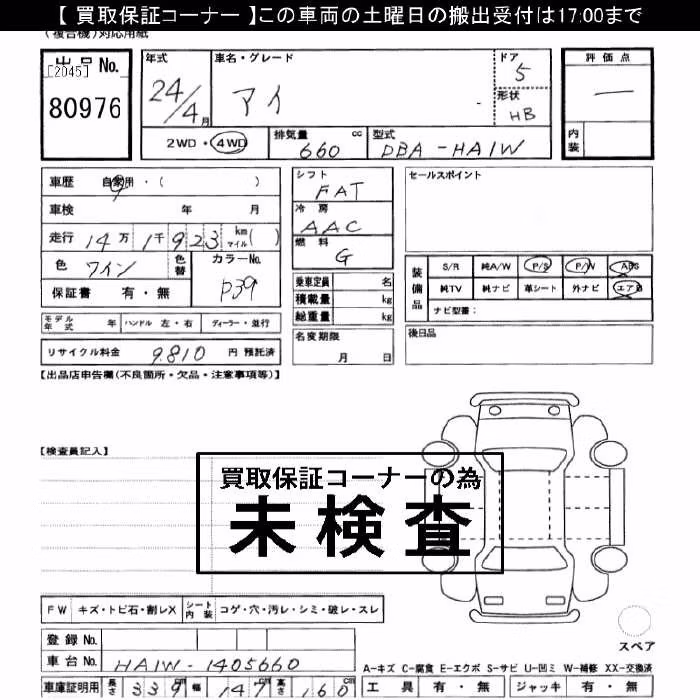 【 買取保証コーナー 】この車両の土曜日の搬出受付は17:00まで
(複合機)対応用紙
出品No.
[2045]
80976
年式
24/4月
車名・グレード
アイ
ドア
5
形状
HB
評価点
一
内装
2WD・4WD
排気量 cc
660
型式
DBA-HA1W
車歴 自家用・( )
車検 年 月
走行 14万1千923 km マイル( )
色 ワイン 色替
カラーNo.
P39
保証書 有・無
シフト
FAT
冷房
AAC
燃料
G
乗車定員 名
積載量 kg
総重量 kg
セールスポイント
装備品
S/R 純A/W P/S P/W ABS
純TV 純ナビ 革シート 外ナビ エアB
ナビ型番:
モデル年式 年 ハンドル 左・右 ディーラー・並行
名変期限
月 日
後日品
リサイクル料金 9,810 円 預託済
【出品店申告欄(不良箇所・欠品・注意事項等)】
【検査員記入】
買取保証コーナーの為
未検査
FW キズ・トビ石・割レX シート内装 コゲ・穴・汚レ・シミ・破レ・スレ
スペア
登録No.
車台No. HA1W-1405660
A-キズ C-腐食 E-エクボ S-サビ U-凹ミ W-補修 XX-交換済
車庫証明用 長さ 339cm 幅 147cm 高さ 160cm
工具 有・無 ジャッキ 有・無